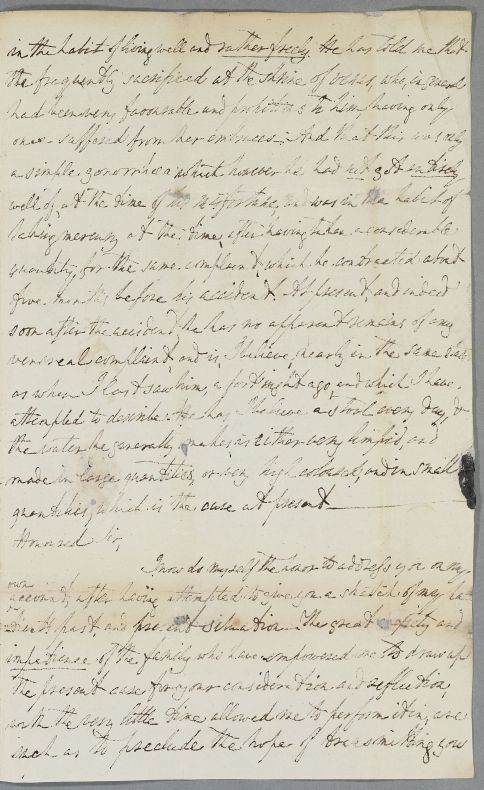 in the habit of living well and rather freely. He has told me that
He frequently sacrificed at the shrine of Venus, who, in general
had been very favourable and propitious to him, having only
once suffered from her embraces: And that this was only
a simple gonorrhœa which however he had not got entirely
well of, at the time of his misfortune, and was in the habit of
taking mercury at the time, after having taken a considerable
quantity, for the same complaint, which he contracted about
five months before his accident. At present, and indeed
soon after the accident, he has no apparent remains of any
venereal complaint, and is, I believe, nearly in the same state
as when I last saw him, a fortnight ago, and which I have
attempted to describe. He has I believe a stool every day, &
the water he generally makes is either very limpid, and
made in large quantities, or very high coloured, and in small
quantities, which is the case at present
Honoured Sir,
I now do myself the honor to address you on my
own
account, after having attempted to give you a sketch of my pa-
tient's past, and present situation. The great anxiety and
impatience of the family who have empowered me to draw up
the present case for your consideration and reflection,
with the very little time allowed me to perform it in, are
such as to preclude the hope of transmitting you